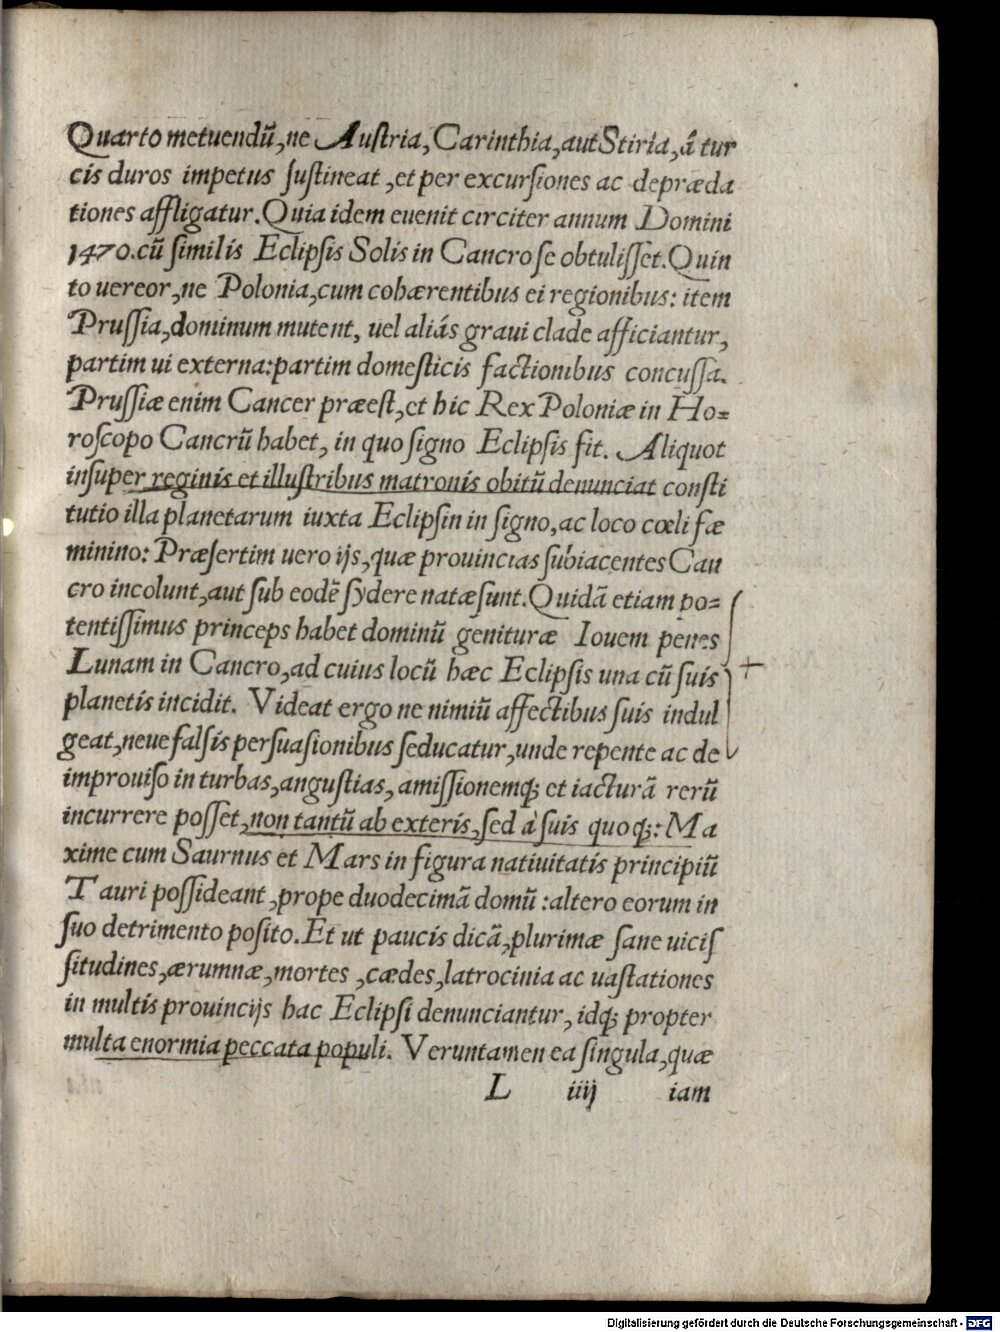 Quarto metuendū, ne Austria, Carinthia, aut Stiria, á tur
cis duros impetus sustineat, et per excursiones ac depræda
tiones affligatur. Quia idem euenit circiter annum Domini
1470. cū similis Eclipsis Solis in Cancro se obtulisset. Quin
to uereor, ne Polonia, cum cohærentibus ei regionibus: item
Prussia, dominum mutent, uel aliás graui clade afficiantur,
partim ui externa: partim domesticis factionibus concussa.
Prussiæ enim Cancer præest, et hic Rex Poloniæ in Ho=
roscopo Cancrū habet, in quo signo Eclipsis fit. Aliquot
insuper reginis et illustribus matronis obitū denunciat consti
tutio illa planetarum iuxta Eclipsin in signo, ac loco cœli fæ
minino: Præsertim uero ijs, quæ prouincias subiacentes Can
cro incolunt, aut sub eodē sydere natæ sunt. Quidā etiam po=
tentissimus princeps habet dominū genituræ Iouem penes
Lunam in Cancro, ad cuius locū hæc Eclipsis una cū suis
planetis incidit. Videat ergo ne nimiū affectibus suis indul
geat, neue falsis persuasionibus seducatur, unde repente ac de
improuiso in turbas, angustias, amissionemq; et iacturā rerū
incurrere posset, non tantū ab exteris, sed à suis quoq;: Ma
xime cum Saurnus et Mars in figura natiuitatis principiū
Tauri possideant, prope duodecimā domū: altero eorum in
suo detrimento posito. Et ut paucis dicā, plurimæ sane uicis
situdines, ærumnæ, mortes, cædes, latrocinia ac uastationes
in multis prouincijs hac Eclipsi denunciantur, idq; propter
multa enormia peccata populi. Veruntamen ea singula, quæ
L iiij iam
Digitalisierung gefördert durch die Deutsche Forschungsgemeinschaft - DFG